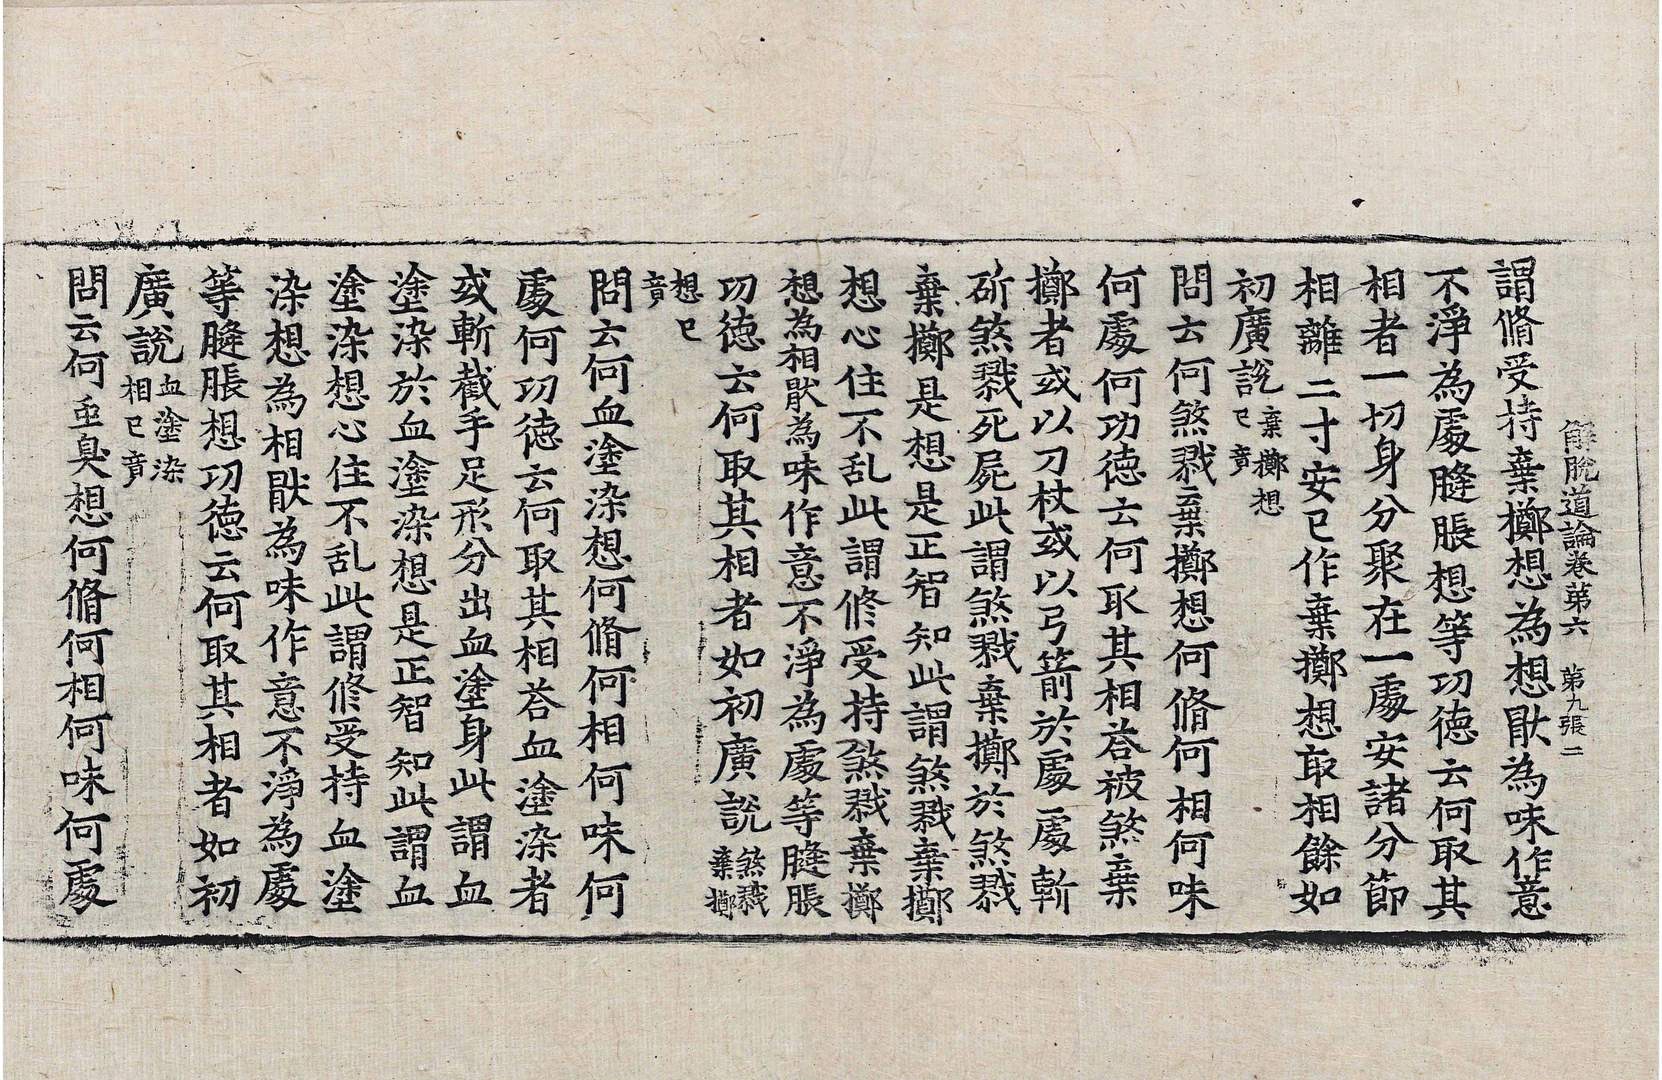 解脫道論卷第六　第九張二
謂脩受持棄擲想為想厭為味作意
不淨為處膖脹想等功德云何取其
相者一切身分聚在一處安諸分節
相離二寸安已作棄擲想取相餘如
初廣說棄擲想已竟
問云何煞戮棄擲想何脩何相何味
何處何功德云何取其相荅被煞棄
擲者或以刀杖或以弓箭於處處斬
斫煞戮死屍此謂煞戮棄擲於煞戮
棄擲是想是正智知此謂煞戮棄擲
想心住不乱此謂修受持煞戮棄擲
想為相厭為味作意不淨為處等膖脹
功德云何取其相者如初廣說煞戮棄擲
想已竟
問云何血塗染想何脩何相何味何
處何功德云何取其相荅血塗染者
或斬截手足形分出血塗身此謂血
塗染於血塗染想是正智知此謂血
塗染想心住不乱此謂修受持血塗
染想為相厭為味作意不淨為處
等膖脹想功德云何取其相者如初
廣說血塗染相已竟
問云何虫臭想何脩何相何味何處